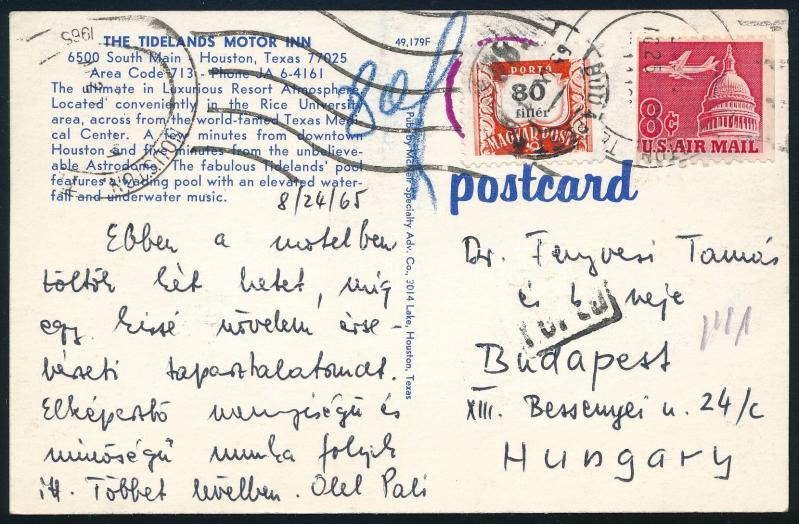 THE TIDELANDS MOTOR INN
6500 South Main · Houston, Texas 77025
Area Code 713 - Phone JA 6-4161
The ultimate in Luxurious Resort Atmosphere.
Located conveniently in the Rice University
area, across from the world-famed Texas Medi-
cal Center. A few minutes from downtown
Houston and five minutes from the unbeliev-
able Astrodome. The fabulous Tidelands' pool
features a wading pool with an elevated water-
fall and underwater music.
49,179F
1965
PORTO
80
fillér
MAGYAR POSTA
8¢
U.S. AIR MAIL
postcard
Specialty Adv. Co., 3014 Lake, Houston, Texas
8/24/65
Ebben a motelben
töltök két hetet, míg
egy kissé növelem érse-
bészeti tapasztalatomat.
Elképesztő mennyiségű és
minőségű munka folyik
itt. Többet levélben. Ölel Pali
Dr. Fenyvesi Tamás
és k. neje
Budapest
XIII. Bessenyei u. 24/c
Hungary